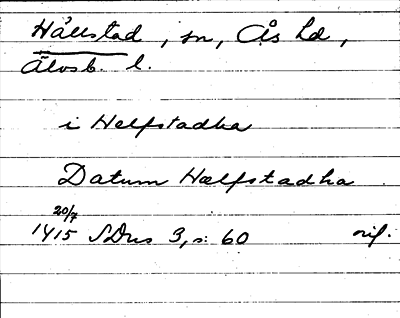 Hällstad, sn, Ås hd,
Älvsb. l.
i Helfstadha
Datum Hælfstadha
20/7
1415 SDns 3, s: 60 orig.